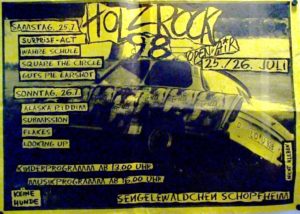 HOLZROCK
98
OPEN-AIR
25./26. JULI
SAMSTAG. 25.7
SURPRISE-ACT
WAHRE SCHULE
SQUARE THE CIRCLE
GUTS PIE EARSHOT
SONNTAG. 26.7
ALASKA RIDDIM
SUBMISSION
FLAKES
LOOKING UP
KINDERPROGRAMM AB 13.00 UHR
MUSIKPROGRAMM AB 16.00 UHR
KEINE
HUNDE
SENGELEWÄLDCHEN SCHOPFHEIM